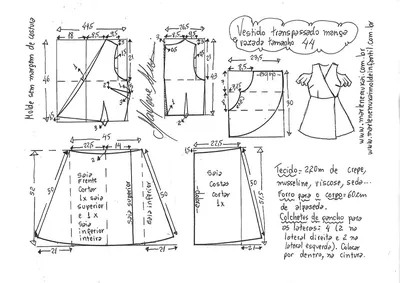 Molde sem margem de costura
49,5
18
8,5
9,5
46
43
26,5
Marlene Mukai
Vestido transpassado manga
vazada tamanho 44
www.marlenemukai.com.br
www.marlenemukaimoldeinfantil.com.br
30
45
22,5
14
52
50
50
21
21
Saia
frente
Cortar
1x saia
superior
e 1 x
saia
inferior
inteira
saia superior
saia inferior
22,5
50
57,5
21
Saia
Costas
cortar
1x
Tecido: 2,20m de crepe,
musseline, viscose, seda...
Forro para o corpo: 60cm
de alpaseda.
Colchetes de gancho para
as laterais: 4 (2 na
lateral direita e 2 na
lateral esquerda). Colocar
por dentro, na cintura.